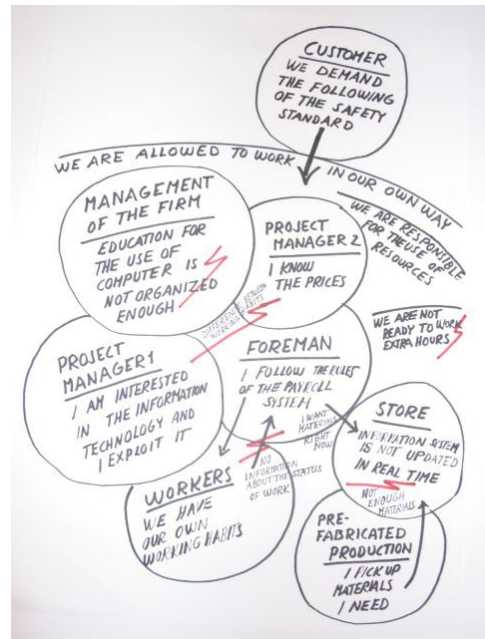 CUSTOMER
WE DEMAND
THE FOLLOWING
OF THE SAFETY
STANDARD
WE ARE ALLOWED TO WORK IN OUR OWN WAY
WE ARE RESPONSIBLE
FOR THE USE OF
RESOURCES
MANAGEMENT
OF THE FIRM
EDUCATION FOR
THE USE OF
COMPUTER IS
NOT ORGANIZED
ENOUGH
PROJECT
MANAGER 2
I KNOW
THE PRICES
DIFFERENCE BETWEEN
WORKING HABITS
WE ARE NOT
READY TO WORK
EXTRA HOURS
PROJECT
MANAGER 1
I AM INTERESTED
IN THE INFORMATION
TECHNOLOGY AND
I EXPLOIT IT
FOREMAN
I FOLLOW THE RULES
OF THE PAYROLL
SYSTEM
I WANT
MATERIALS
RIGHT
NOW
STORE
INFORMATION SYSTEM
IS NOT UPDATED
IN REAL TIME
NOT
ENOUGH
MATERIALS
NO
INFORMATION
ABOUT THE STATUS
OF WORK
WORKERS
WE HAVE
OUR OWN
WORKING HABITS
PRE-
FABRICATED
PRODUCTION
I PICK UP
MATERIALS
I NEED